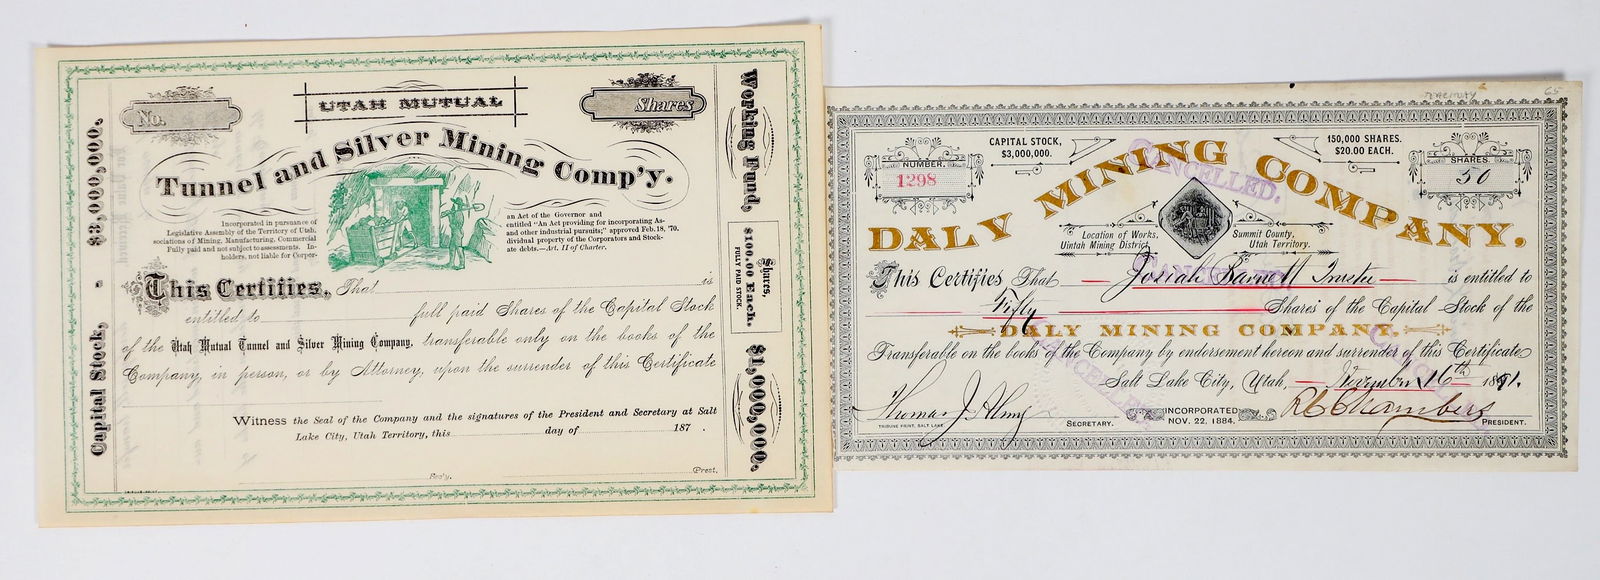 UTAH MUTUAL
No.
Shares
Tunnel and Silver Mining Comp'y.
Incorporated in pursuance of
Legislative Assembly of the Territory of Utah,
sociations of Mining, Manufacturing, Commercial
Fully paid and not subject to assessments. In-
holders, not liable for Corpor-
an Act of the Governor and
entitled "An Act providing for incorporating As-
and other industrial pursuits;" approved Feb. 18, '70.
dividual property of the Corporators and Stock-
ate debts.—Art. II of Charter.
This Certifies, That is
entitled to full paid Shares of the Capital Stock
of the Utah Mutual Tunnel and Silver Mining Company, transferable only on the books of the
Company, in person, or by Attorney, upon the surrender of this Certificate
Witness the Seal of the Company and the signatures of the President and Secretary at Salt
Lake City, Utah Territory, this day of 187 .
Sec'y.
Prest.
Capital Stock, - $3,000,000.
Working Fund, $1,000,000.
Shares, $100.00 Each.
FULLY PAID STOCK.
65
NUMBER.
1298
CAPITAL STOCK,
$3,000,000.
150,000 SHARES.
$20.00 EACH.
SHARES.
50
DALY MINING COMPANY.
CANCELLED.
Location of Works,
Uintah Mining District,
Summit County,
Utah Territory.
This Certifies That Josiah Barnett Trustee is entitled to
Fifty Shares of the Capital Stock of the
DALY MINING COMPANY.
CANCELLED
Transferable on the books of the Company by endorsement hereon and surrender of this Certificate
Salt Lake City, Utah, November 16th 1891.
Thomas J. Almy
SECRETARY.
INCORPORATED
NOV. 22, 1884.
R C Chambers
PRESIDENT.
TRIBUNE PRINT, SALT LAKE